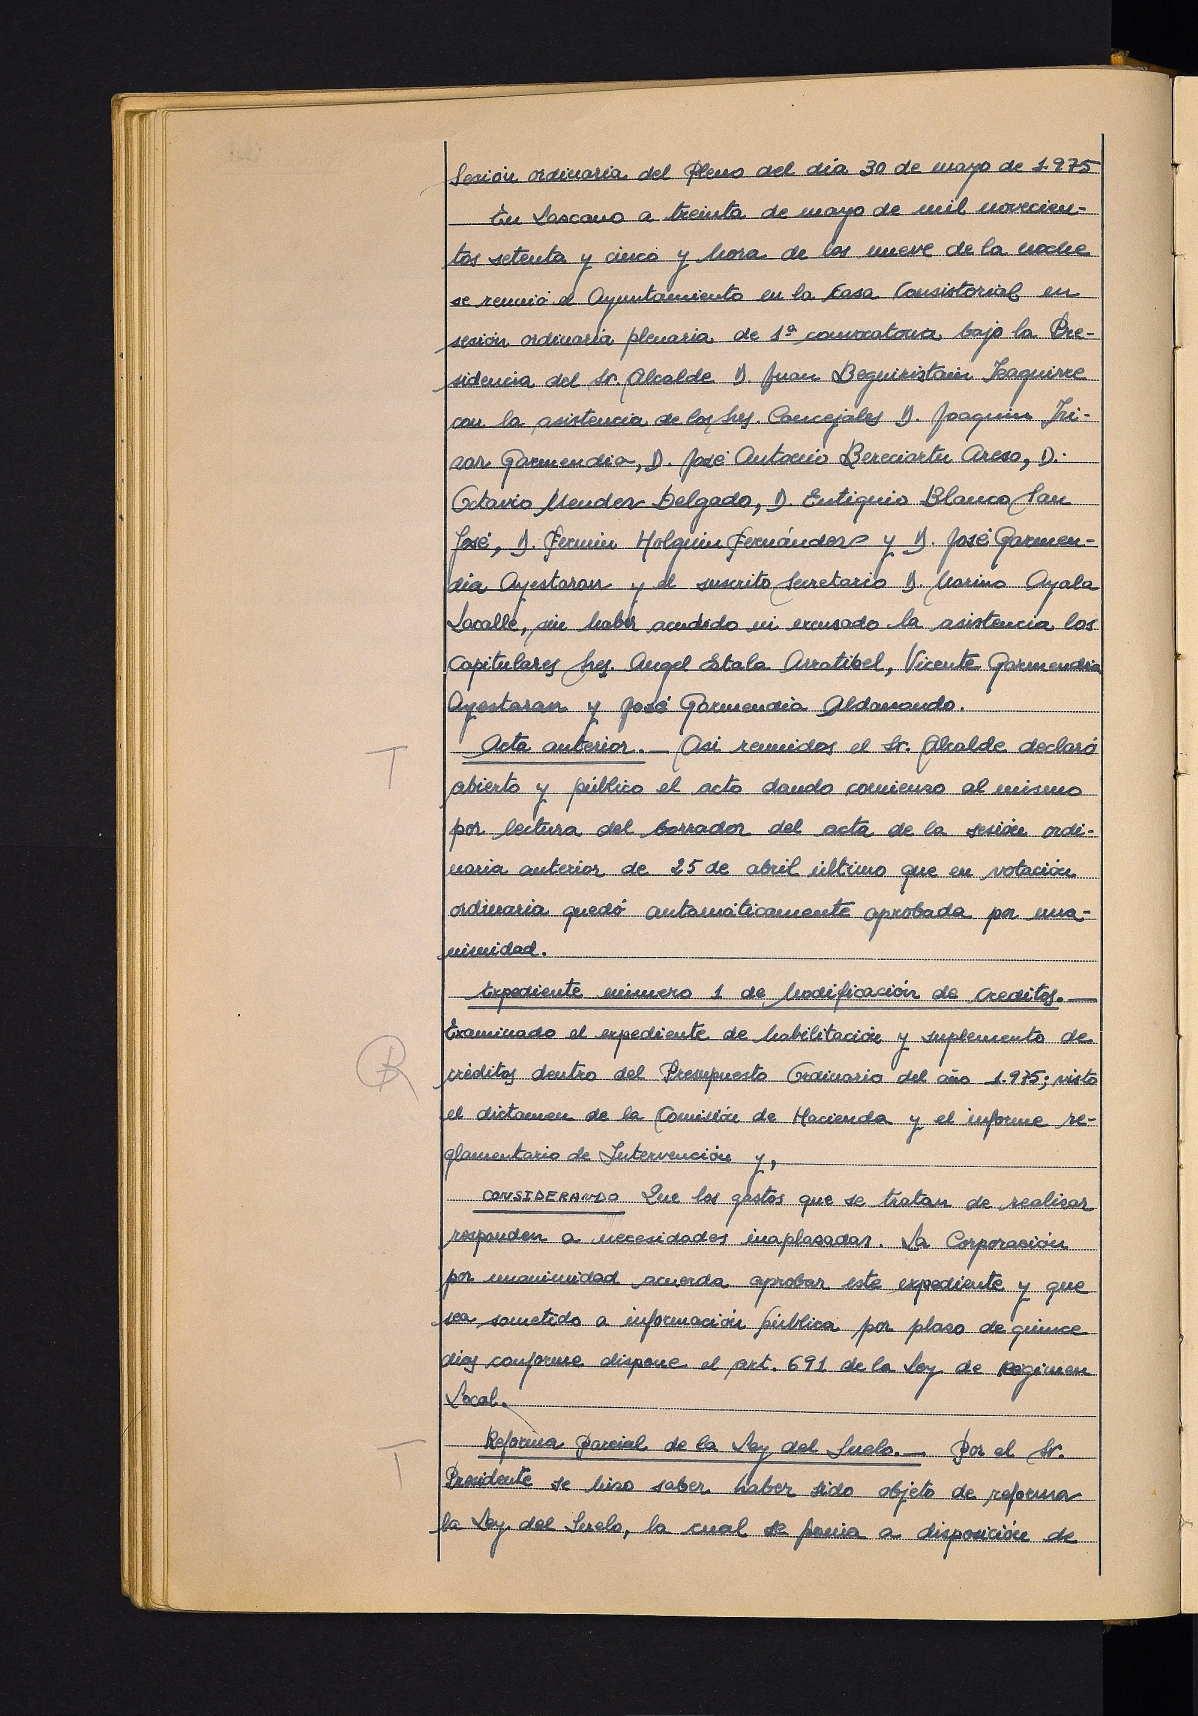 Sesión ordinaria del Pleno del día 30 de mayo de 1.975
En Lascano a treinta de mayo de mil novecien-
tos setenta y cinco y hora de las nueve de la noche
se reunió el Ayuntamiento en la Casa Consistorial en
sesión ordinaria plenaria de 1ª convocatoria bajo la Pre-
sidencia del Sr. Alcalde D. Juan Beguiristain Izaguirre
con la asistencia de los Sres. Concejales D. Joaquin Iri-
zar Garmendia, D. José Antonio Bereciartu Areso, D.
Octavio Mendez Delgado, D. Eutiquio Blanco San
José, D. Fermin Holguin Fernández y D. José Garmen-
dia Ayestaran y el suscrito Secretario D. Marino Ayala
Lacalle, sin haber acudido ni excusado la asistencia los
Capitulares Sres. Angel Arratibel, Vicente Garmendia
Ayestaran y José Garmendia Aldanondo.
T Acta anterior.— Asi reunidos el Sr. Alcalde declaró
abierto y público el acto dando comienzo al mismo
por lectura del borrador del acta de la sesión ordi-
naria anterior de 25 de abril último que en votación
ordinaria quedó automáticamente aprobada por una-
nimidad.
Expediente número 1 de Modificación de Creditos.—
Examinado el expediente de habilitación y suplemento de
R créditos dentro del Presupuesto Ordinario del año 1.975; visto
el dictamen de la Comisión de Hacienda y el informe re-
glamentario de Intervención y,
CONSIDERANDO Que los gastos que se tratan de realizar
responden a necesidades inaplazadas. La Corporación
por unanimidad acuerda aprobar este expediente y que
sea sometido a información pública por plazo de quince
dias conforme dispone el art. 691 de la Ley de Regimen
Local.
T Reforma Parcial de la Ley del Suelo.— Por el Sr.
Presidente se hizo saber haber sido objeto de reforma
la Ley del Suelo, la cual se ponia a disposición de